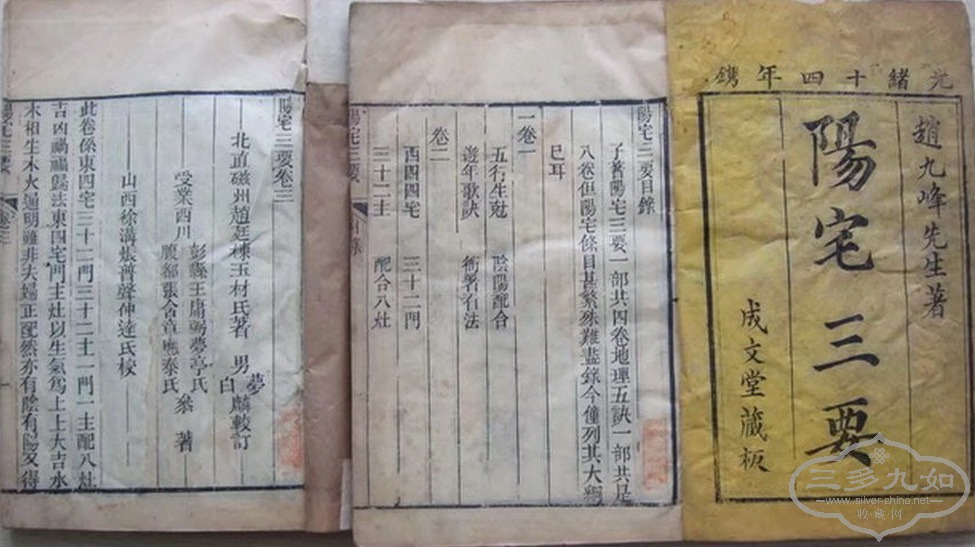 光緒十四年鐫
趙九峰先生著
陽宅三要
成文堂藏板
陽宅三要目錄
予著陽宅三要一部共四卷地理五訣一部共足
八卷但陽宅條目甚繁殊難盡錄今僅列其大槩
已耳
一卷一
五行生尅 陰陽配合
遊年歌訣 衙署
卷二
西四四宅 三十二門
三十二主 配合八灶
陽宅三要 目錄
陽宅三要卷三
北直磁州趙廷棟玉材氏著 男 夢 白 麟較訂
受業西川
彭 王庸弼夢亭氏
都張含章應泰氏
叅 著
山西徐溝張普聲伸達氏校
此卷係東四宅三十二門三十二主一門一主配八灶
吉凶禍福歸法東四宅門主灶以生氣為上上大吉水
木相生木火通明雖非夫婦正配然亦有陰有陽又得
陽宅三要 卷三
三多九如
www.silver-china.net
收·藏·网